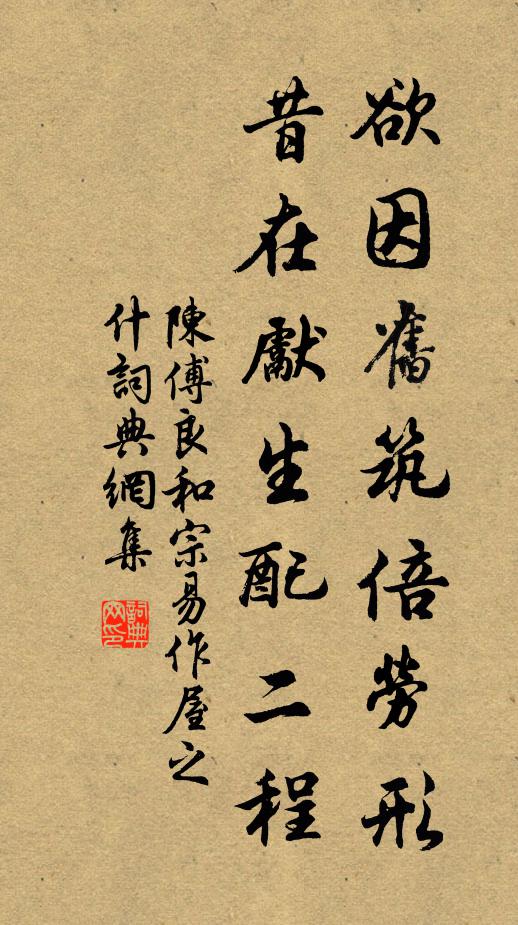 欲因舊筑倍勞形
昔在獻生配二程
陳傅良和宗易作屋之
什詞典網集
詞典
网印